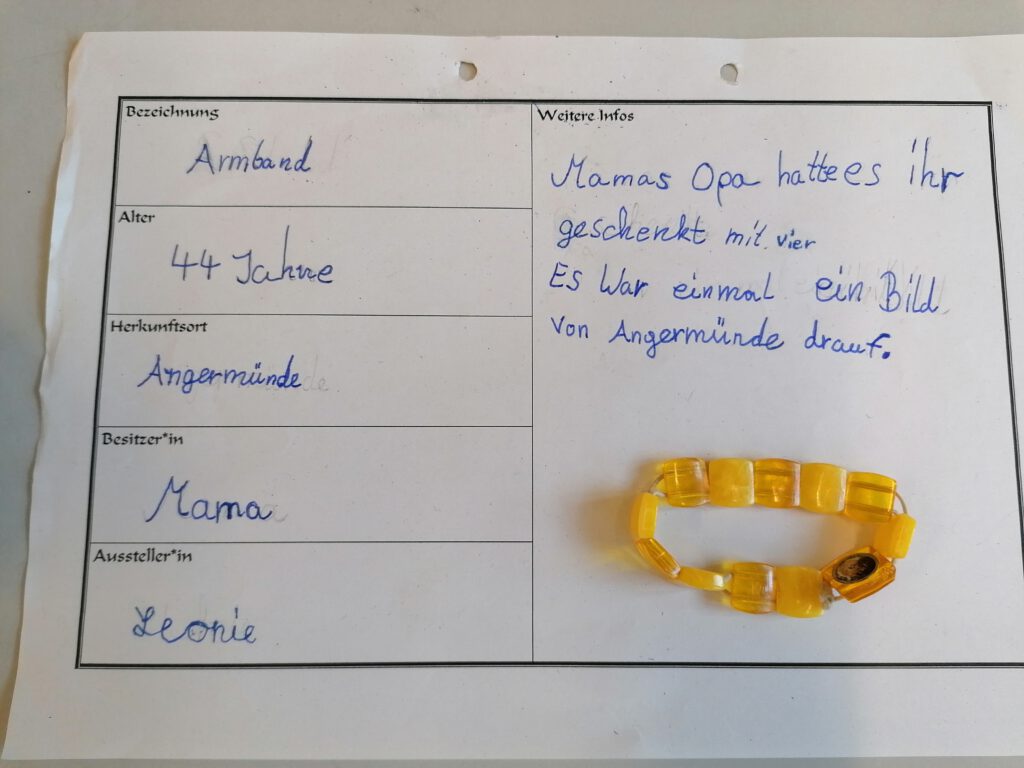 Bezeichnung
Armband
Alter
44 Jahre
Herkunftsort
Angermünde
Besitzer*in
Mama
Aussteller*in
Leonie
Weitere Infos
Mamas Opa hatte es ihr
geschenkt mit vier
Es War einmal ein Bild
von Angermünde drauf.